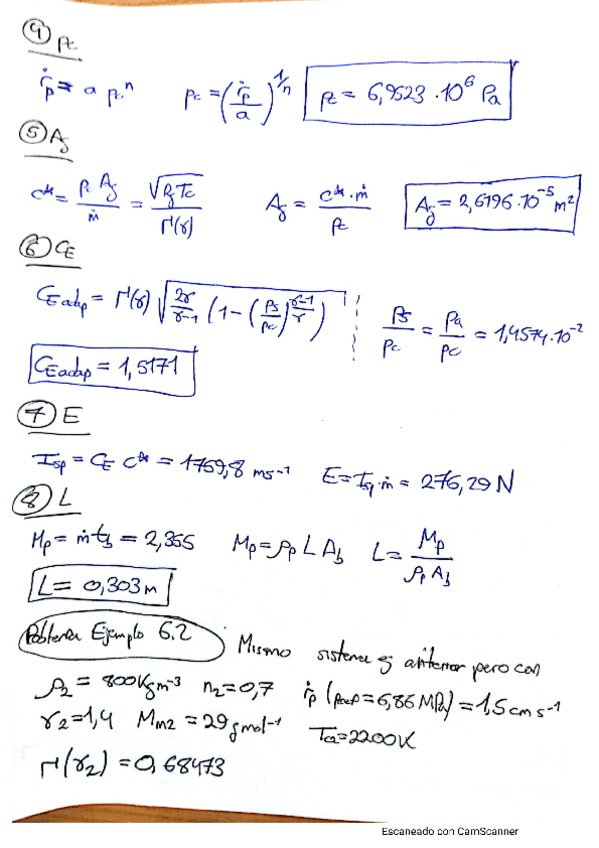 ④ pc
ṙp = a pc^n    pc = (ṙp/a)^(1/n)    pc = 6,9523·10^6 Pa
⑤ Ag
c* = pc Ag/ṁ = √(Rg Tc)/Γ(γ)    Ag = c*·ṁ/pc    Ag = 2,6196·10^-5 m²
⑥ CE
CEadap = Γ(γ) √(2γ/(γ-1) (1-(ps/pc)^((γ-1)/γ)))    ps/pc = pa/pc = 1,4574·10^-2
CEadap = 1,5171
⑦ E
Isp = CE c* = 1759,8 ms^-1    E = Isp·ṁ = 276,29 N
⑧ L
Mp = ṁtb = 2,355    Mp = ρp L Ab    L = Mp/(ρp Ab)
L = 0,303 m
Problema Ejemplo 6.2    Mismo sistema q anterior pero con
ρ2 = 800 Kg m^-3    n2 = 0,7    ṙp (pref = 6,86 MPa) = 1,5 cm s^-1
γ2 = 1,4    Mm2 = 29 g mol^-1    Tc2 = 2200 K
Γ(γ2) = 0,68473
Escaneado con CamScanner